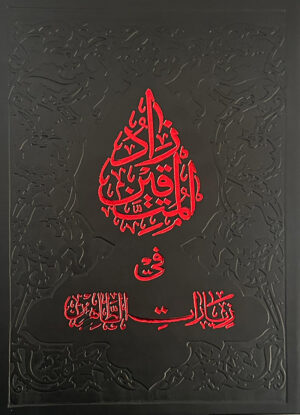 زَادُ
المُتَّقِين
في
زيارات الطاهرين